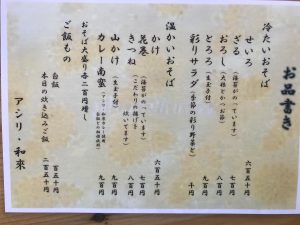 お品書き
冷たいおそば
せいろ 六百五十円
ざる (海苔がのっています) 七百円
おろし (大根おろし) 八百円
とろろ (生玉子付) 九百円
彩りサラダ (季節の彩り野菜と) 千円
温かいおそば
かけ 六百五十円
花巻 (海苔がのっています) 七百円
きつね (こだわりの揚げを炊いてます) 八百円
山かけ (生玉子付) 九百円
カレー南蛮 九百円
おそば大盛り各二百円増し
ご飯もの
白飯 百五十円
本日の炊き込みご飯 二百五十円
アシリ・和來